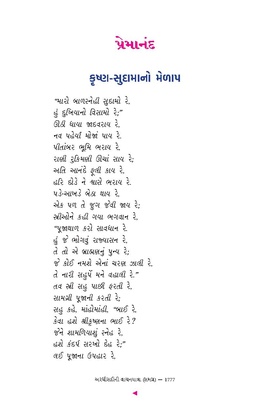 પ્રેમાનંદ
કૃષ્ણ-સુદામાનો મેળાપ
“મારો બાળસ્નેહી સુદામો રે,
હું દુખિયાનો વિસામો રે;”
ઊઠી ધાયા જાદવરાય રે,
નવ પહેર્યાં મોજાં પાય રે.
પીતાંબર ભૂમિ ભરાય રે,
રાણી રુકમિણી ઊંચાં સાય રે;
અતિ આનંદે ફૂલી કાય રે,
હરિ દોડે ને શ્વાસે ભરાય રે.
પડે-આખડે બેઠા થાય રે,
એક પળ તે જુગ જેવી જાય રે;
સ્ત્રીઓને કહી ગયા ભગવાન રે,
“પૂજાથાળ કરો સાવધાન રે.
હું જે ભોગવું રાજ્યાસન રે,
તે તો એ બ્રાહ્મણનું પુન્ય રે;
જે કોઈ નમશે એનાં ચરણ ઝાલી રે,
તે નારી સહુપેં મને વહાલી રે.”
તવ સ્ત્રી સહુ પાછી ફરતી રે,
સામગ્રી પૂજાની કરતી રે;
સહુ કહે, માંહોમાંહી, “બાઈ રે,
કેવા હશે શ્રીકૃષ્ણના ભાઈ રે?
જેને શામળિયાશું સ્નેહ રે,
હશે કંદર્પ સરખો દેહ રે;”
લઈ પૂજાના ઉપહાર રે,